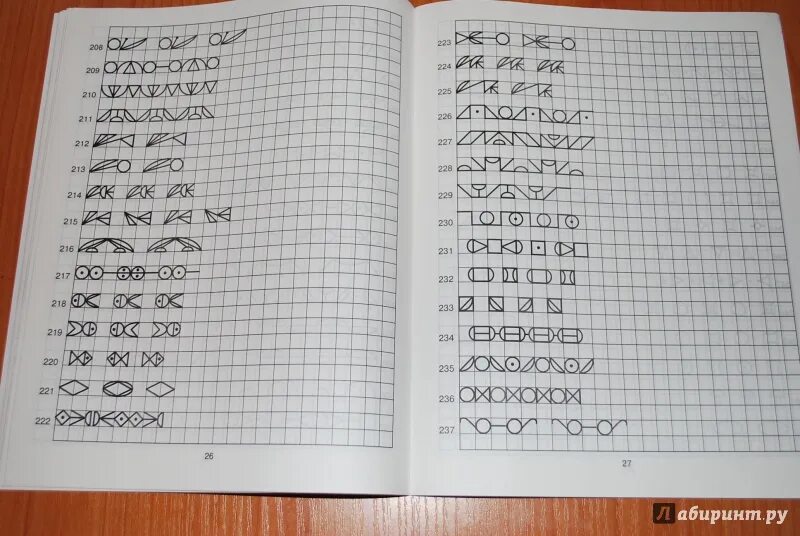 208
209
210
211
212
213
214
215
216
217
218
219
220
221
222
26
223
224
225
226
227
228
229
230
231
232
233
234
235
236
237
27
Лабиринт.ру